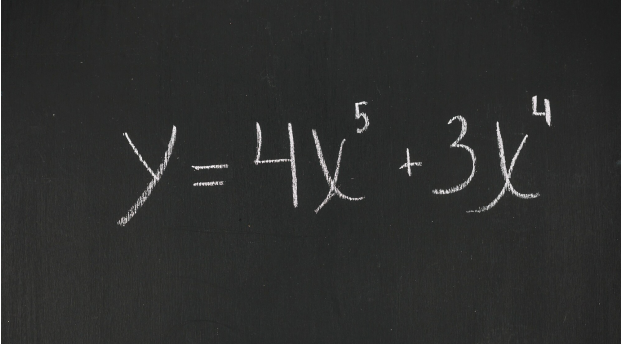 y = 4x⁵ + 3x⁴